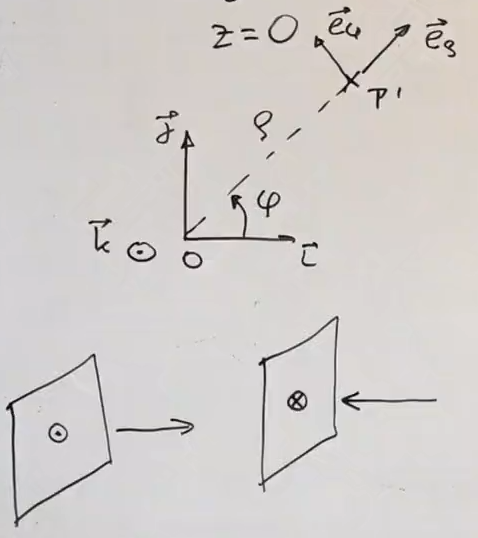 z = 0
e⃗φ
e⃗ρ
P'
ρ
j⃗
φ
k⃗
O
i⃗